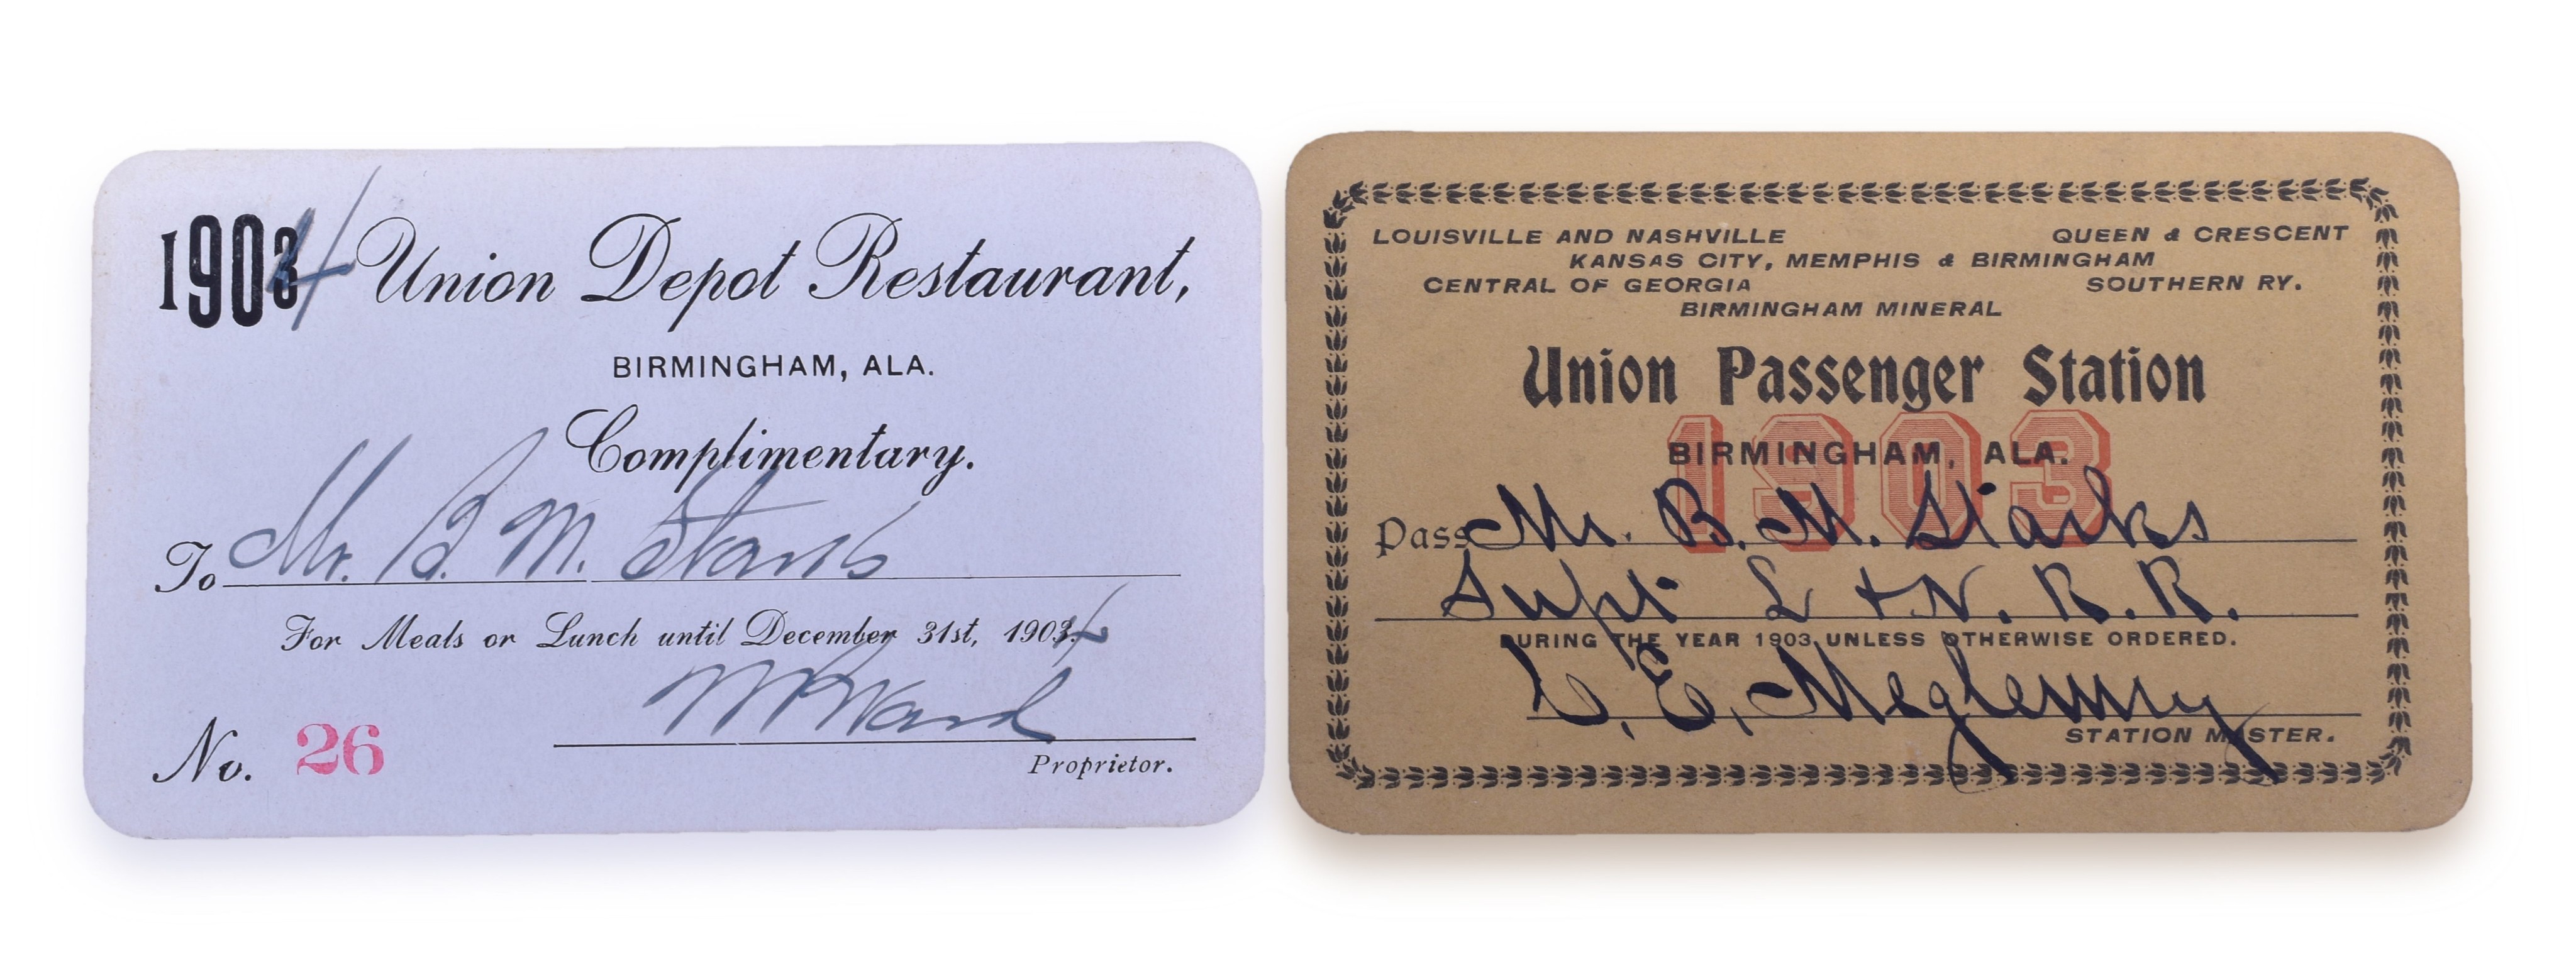 1904 Union Depot Restaurant,
BIRMINGHAM, ALA.
Complimentary.
To Mr. B. M. Starks
For Meals or Lunch until December 31st, 1904
W P Ward
No. 26
Proprietor.
LOUISVILLE AND NASHVILLE QUEEN & CRESCENT
KANSAS CITY, MEMPHIS & BIRMINGHAM
CENTRAL OF GEORGIA SOUTHERN RY.
BIRMINGHAM MINERAL
Union Passenger Station
1903
BIRMINGHAM, ALA.
Pass Mr. B. M. Starks
Supt L & N. R. R.
DURING THE YEAR 1903 UNLESS OTHERWISE ORDERED.
C. E. Meglemry
STATION MASTER.